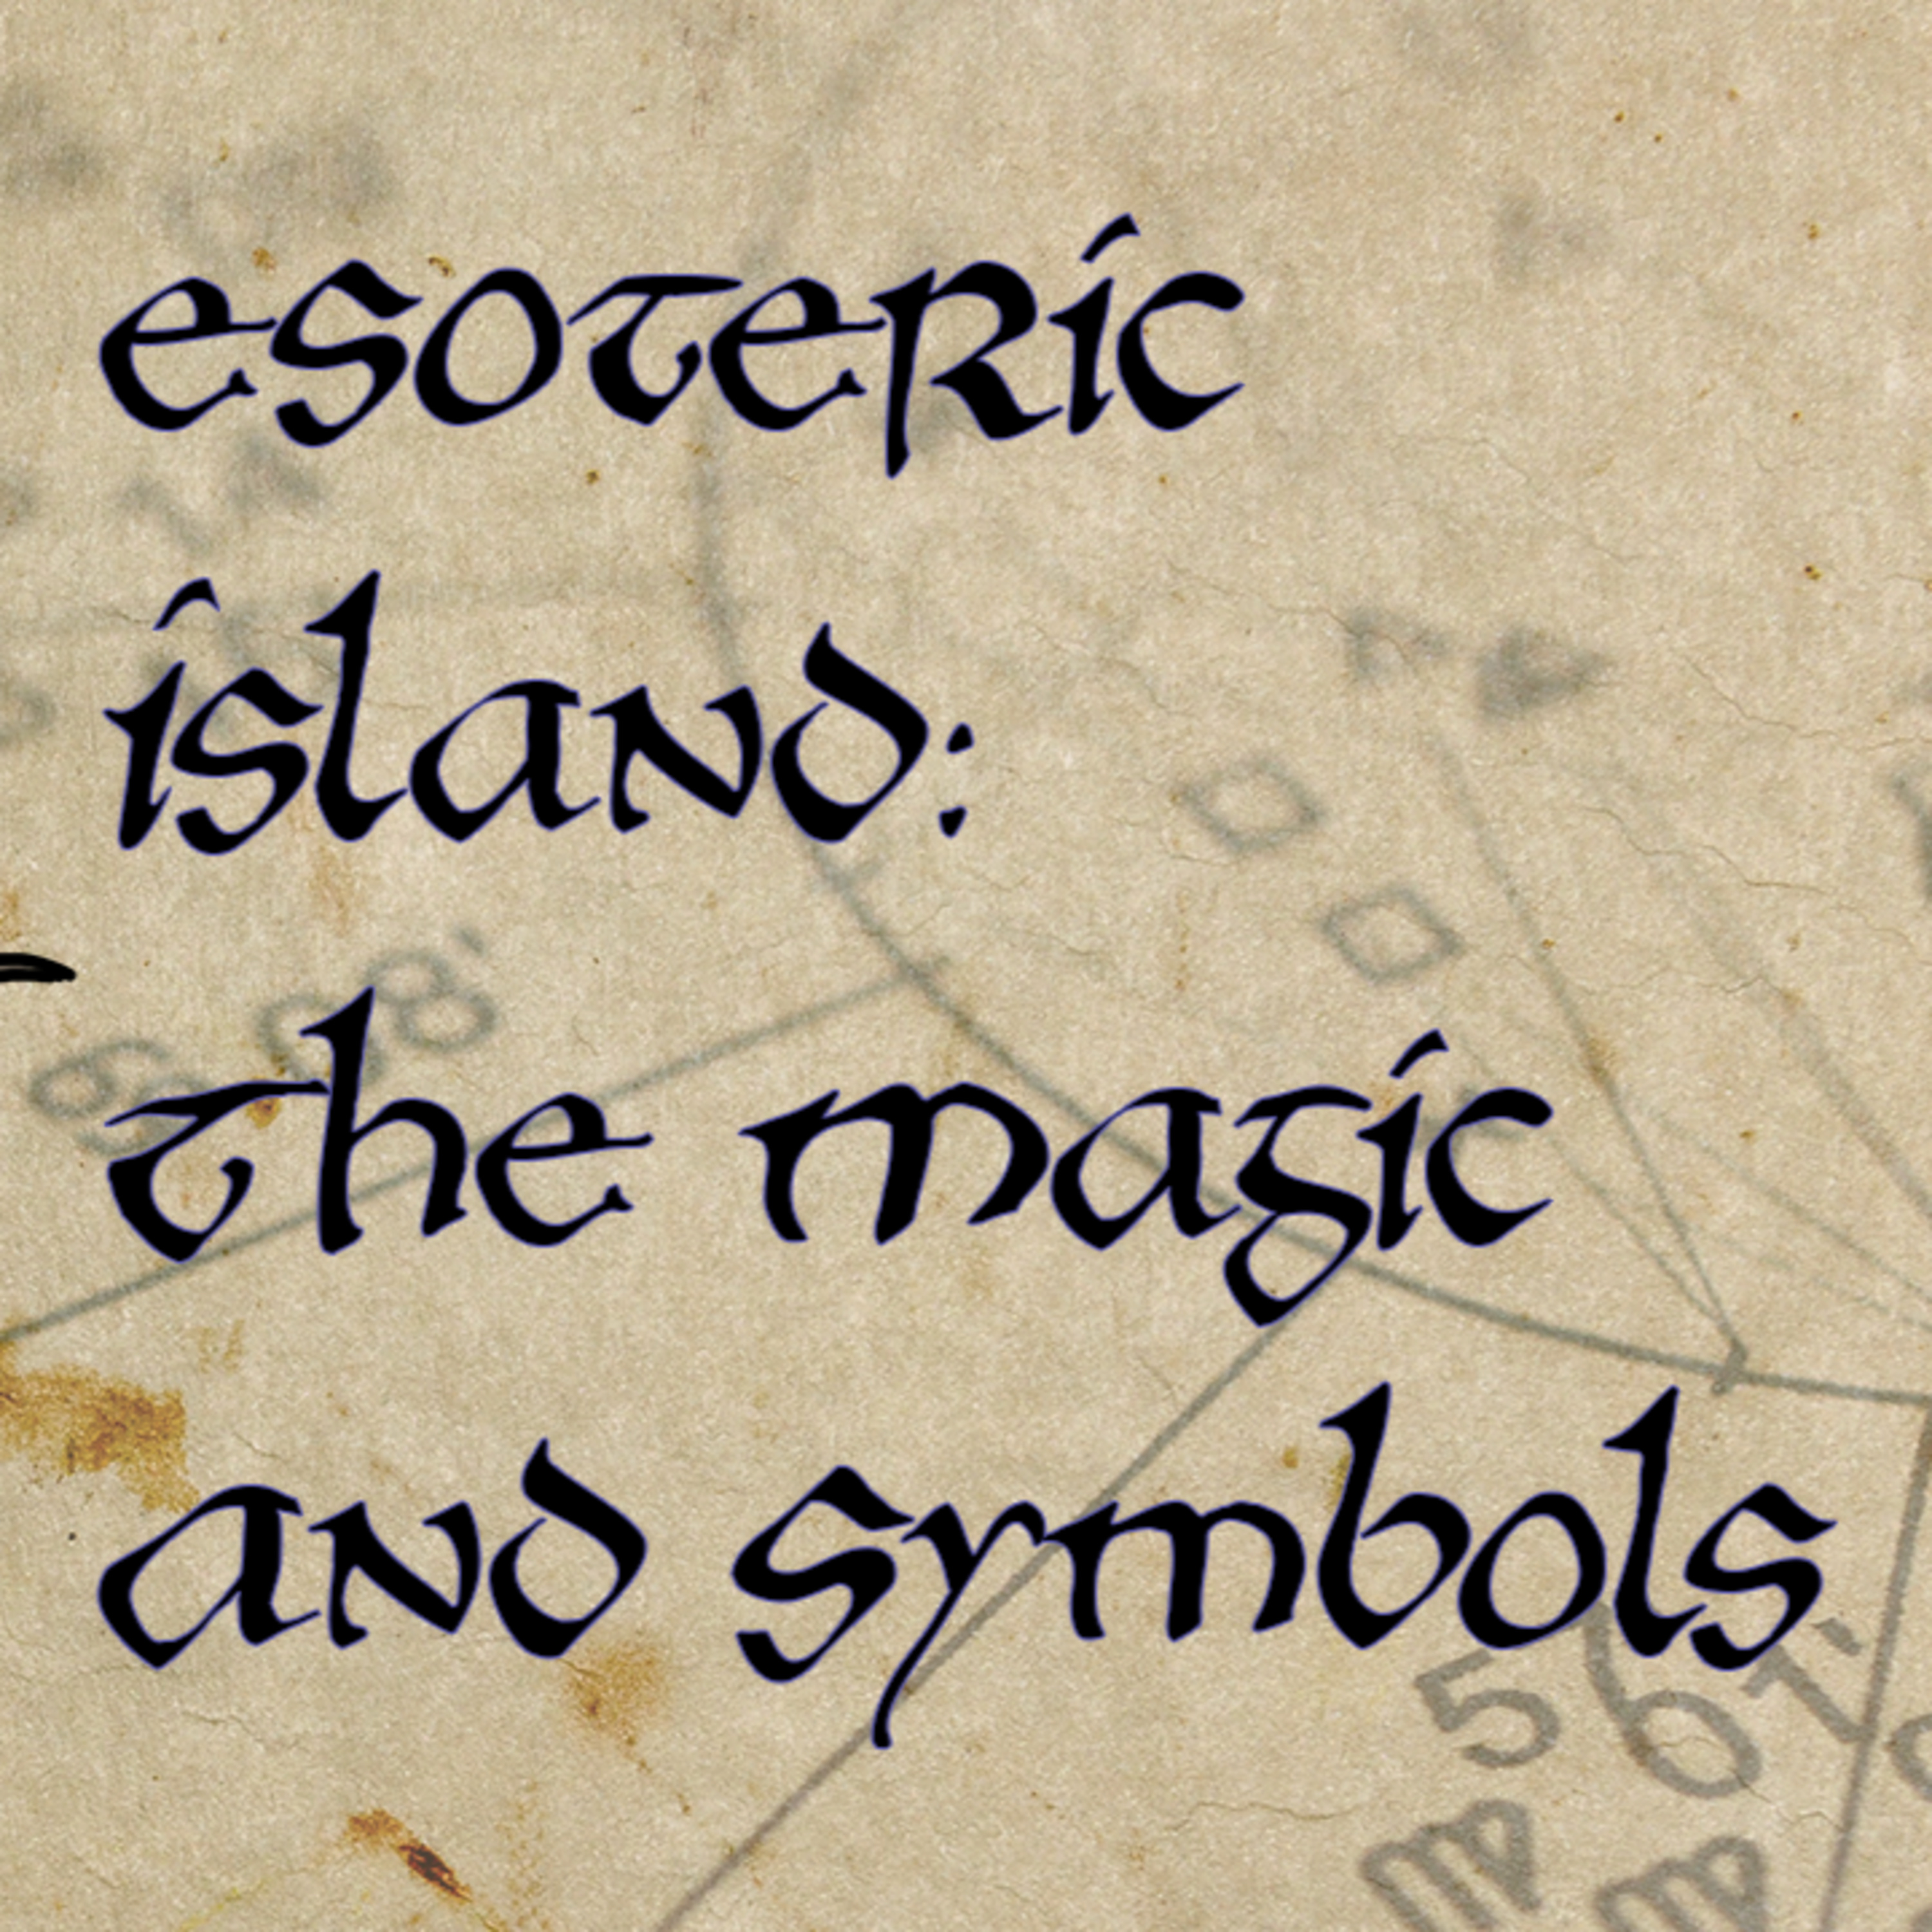 esoteric
island:
the magic
and symbols
56
♍ ♍